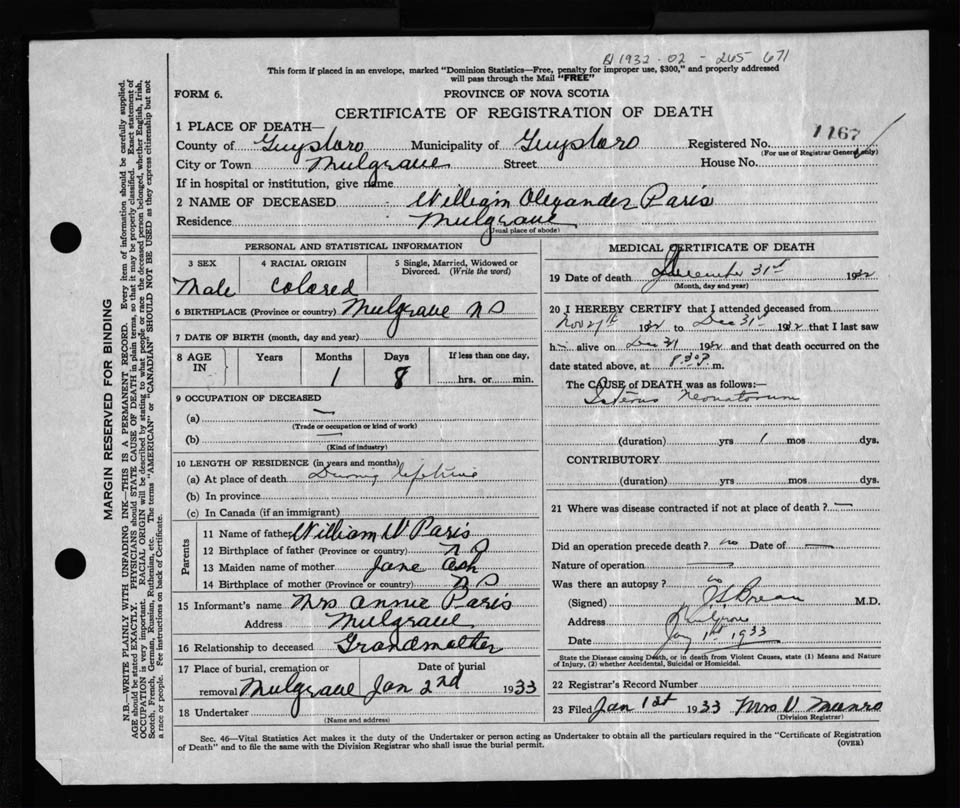 B 1932-02-265 671
This form if placed in an envelope, marked "Dominion Statistics—Free, penalty for improper use, $300," and properly addressed
will pass through the Mail "FREE"
FORM 6.
PROVINCE OF NOVA SCOTIA
CERTIFICATE OF REGISTRATION OF DEATH
1 PLACE OF DEATH—
County of Guysboro Municipality of Guysboro Registered No. 1167
(For use of Registrar General only)
City or Town Mulgrave Street House No.
If in hospital or institution, give name
2 NAME OF DECEASED William Alexander Paris
Residence Mulgrave
(Usual place of abode)
PERSONAL AND STATISTICAL INFORMATION
3 SEX 4 RACIAL ORIGIN 5 Single, Married, Widowed or Divorced. (Write the word)
Male Colored
6 BIRTHPLACE (Province or country) Mulgrave NS
7 DATE OF BIRTH (month, day and year)
8 AGE IN Years Months Days If less than one day,
1 8 hrs. or min.
9 OCCUPATION OF DECEASED
(a) —
(Trade or occupation or kind of work)
(b) —
(Kind of industry)
10 LENGTH OF RESIDENCE (in years and months)
(a) At place of death During lifetime
(b) In province
(c) In Canada (if an immigrant)
Parents
11 Name of father William V Paris
12 Birthplace of father (Province or country) N S
13 Maiden name of mother Jane Ash
14 Birthplace of mother (Province or country) N S
15 Informant's name Mrs Annie Paris
Address Mulgrave
16 Relationship to deceased Grandmother
17 Place of burial, cremation or Date of burial
removal Mulgrave Jan 2nd 1933
18 Undertaker
(Name and address)
MEDICAL CERTIFICATE OF DEATH
19 Date of death December 31st 1932
(Month, day and year)
20 I HEREBY CERTIFY that I attended deceased from
Nov 27th 1932 to Dec 31 1932 that I last saw
h alive on Dec 31 1932 and that death occurred on the
date stated above, at 8.30 P. m.
The CAUSE of DEATH was as follows:—
Icterus Neonatorum
(duration) yrs 1 mos dys.
CONTRIBUTORY
(duration) yrs mos dys.
21 Where was disease contracted if not at place of death? —
Did an operation precede death? no Date of —
Nature of operation —
Was there an autopsy? no
(Signed) M.D.
Address Mulgrave
Date Jan 1st 1933
State the Disease causing Death, or in death from Violent Causes, state (1) Means and Nature
of Injury, (2) whether Accidental, Suicidal or Homicidal.
22 Registrar's Record Number
23 Filed Jan 1st 1933 Mrs V Munro
(Division Registrar)
Sec. 46—Vital Statistics Act makes it the duty of the Undertaker or person acting as Undertaker to obtain all the particulars required in the "Certificate of Registration
of Death" and to file the same with the Division Registrar who shall issue the burial permit.
(OVER)
MARGIN RESERVED FOR BINDING
N.B.—WRITE PLAINLY WITH UNFADING INK—THIS IS A PERMANENT RECORD. Every item of information should be carefully supplied.
AGE should be stated EXACTLY. PHYSICIANS should STATE CAUSE OF DEATH in plain terms, so that it may be properly classified. Exact statement of
OCCUPATION is very important. RACIAL ORIGIN will be described by stating to what people or race the deceased person belonged, whether English, Irish,
Scotch, French, German, Russian, Ruthenian, etc. The terms "AMERICAN" or "CANADIAN" SHOULD NOT BE USED as they express citizenship but not
a race or people. Fee instructions on back of Certificate.